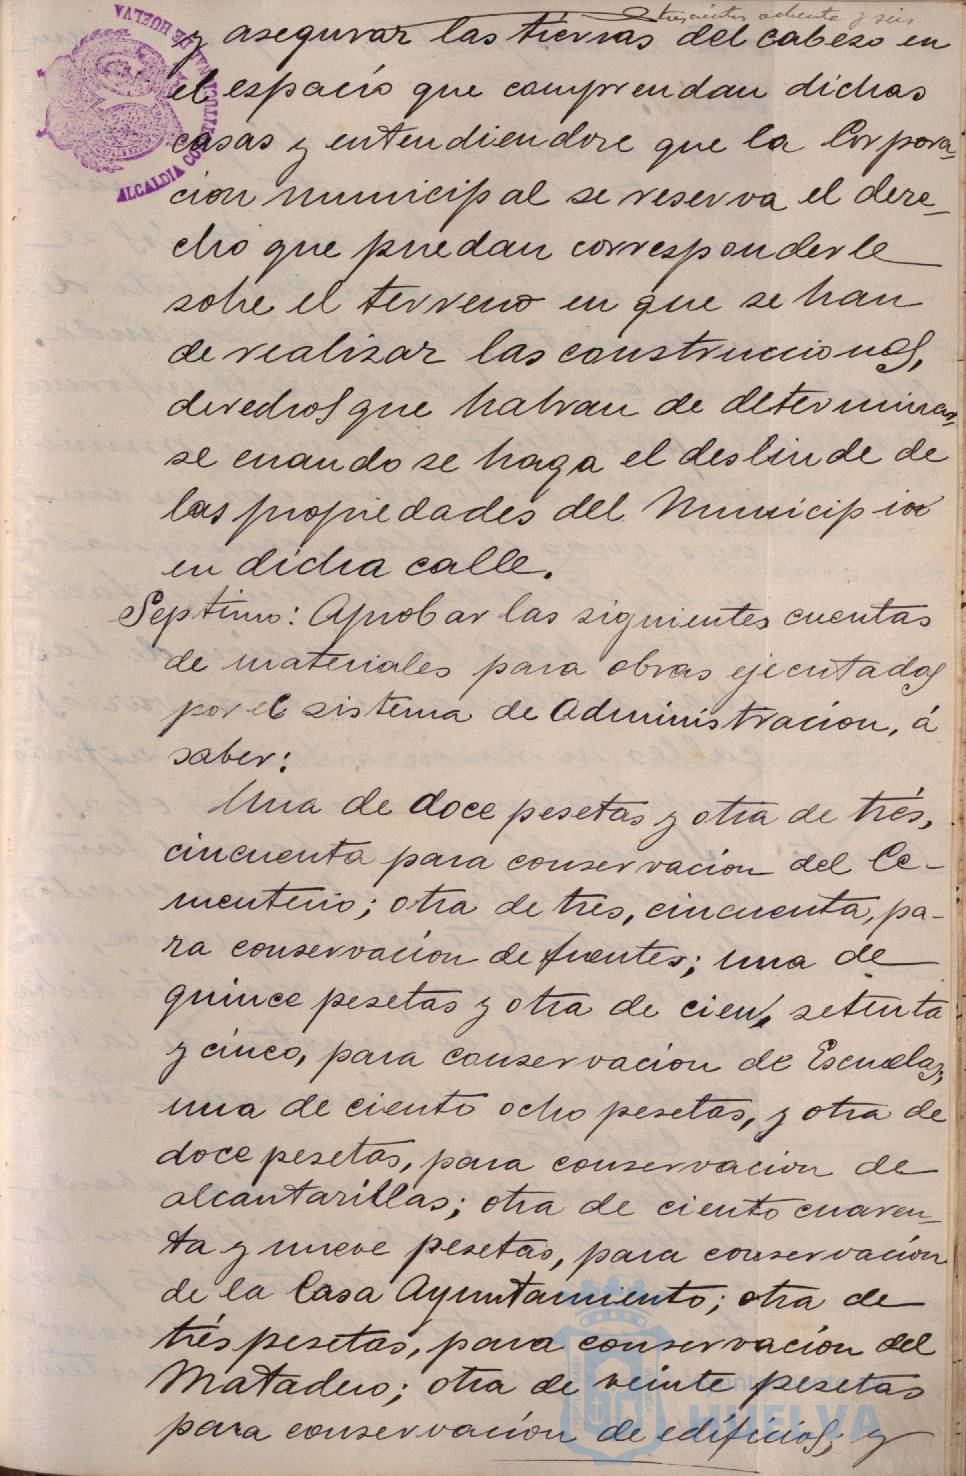 trescientos ochenta y seis
y asegurar las tierras del cabezo en
el espacio que comprendan dichas
casas y entendiendose que la Corpora-
cion municipal se reserva el dere-
cho que puedan corresponderle
sobre el terreno en que se han
de realizar las construcciones,
derechos que habran de determinar-
se cuando se haga el deslinde de
las propiedades del Municipio
en dicha calle.
Septimo: Aprobar las siguientes cuentas
de materiales para obras ejecutadas
por el sistema de Administracion, á
saber:
Una de doce pesetas y otra de trés,
cincuenta para conservacion del Ce-
menterio; otra de tres, cincuenta, pa-
ra conservacion de fuentes; una de
quince pesetas y otra de cien, setenta
y cinco, para conservacion de Escuelas;
una de ciento ocho pesetas, y otra de
doce pesetas, para conservacion de
alcantarillas; otra de ciento cuaren-
ta y nueve pesetas, para conservación
de la Casa Ayuntamiento; otra de
trés pesetas, para conservación del
Matadero; otra de veinte pesetas
para conservación de edificios; y
ALCALDIA CONSTITUCIONAL DE HUELVA
Ayuntamiento de
HUELVA